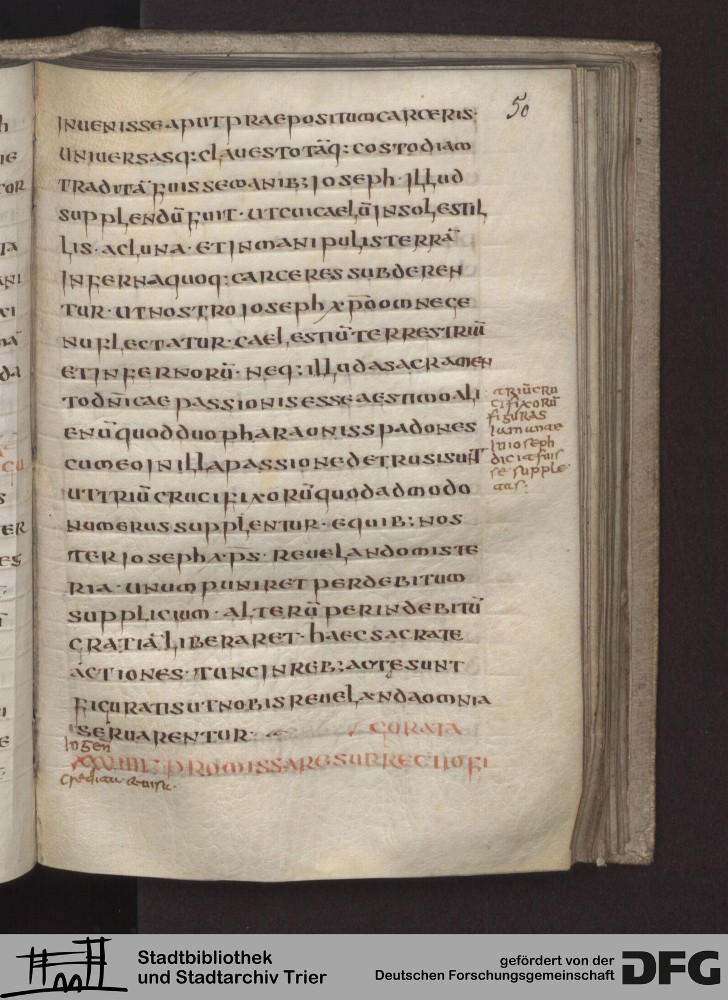 50
INUENISSE APUT PRAEPOSITUM CARCERIS·
UNIUERSASQ: CLAUES TOTĀQ: COSTODIAM
TRADITĀ FUISSE MANIB; IOSEPH· ILLUD
SUPPLENDŪ FUIT· UT CUI CAELŪ IN SOL ESTIL
LIS· AC LUNA· ET IN MANIPULIS TERRĀ
INFERNAQUOQ: CARCERES SUBDEREN
TUR· UT NOSTRO IOSEPH XP̄O OMNE GE
NU FLECTATUR· CAELESTIŪ TERRESTRIŪ
ET INFERNORŪ· NEQ: ILLUD A SACRAMEN
TO DN̄ICAE PASSIONIS ESSE AESTIMO ALI
ENŪ QUOD DUO PHARAONIS SPADONES
CUM EO IN ILLA PASSIONE DETRUSI SUNT
UT TRIŪ CRUCIFIXORŪ QUODADMODO
NUMERUS SUPPLENTUR· E QUIB: NOS
TER IOSEPH XPS· REUELANDO MISTE
RIA· UNUM PUNIRET PER DEBITUM
SUPPLICIUM· ALTERŪ PER INDEBITŪ
GRATIĀ LIBERARET· HAEC SACRATE
ACTIONES· TUNC IN REB: ACTE SUNT
FIGURATIS UT NOBIS REUELANDA OMNIA
SERUARENTUR·
GURATA
In gen̄
XXVIIII: PROMISSA RESURRECTIO FI
triū cru
cifixorū
figuras
in ioseph
dicit fuis
se supple
tas·
Stadtbibliothek
und Stadtarchiv Trier
gefördert von der
Deutschen Forschungsgemeinschaft
DFG